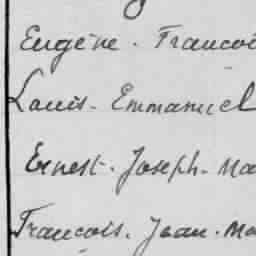 Eugène. Francoi
Louis-Emmanuel
Ernest. Joseph-Ma
Francois. Jean. Ma